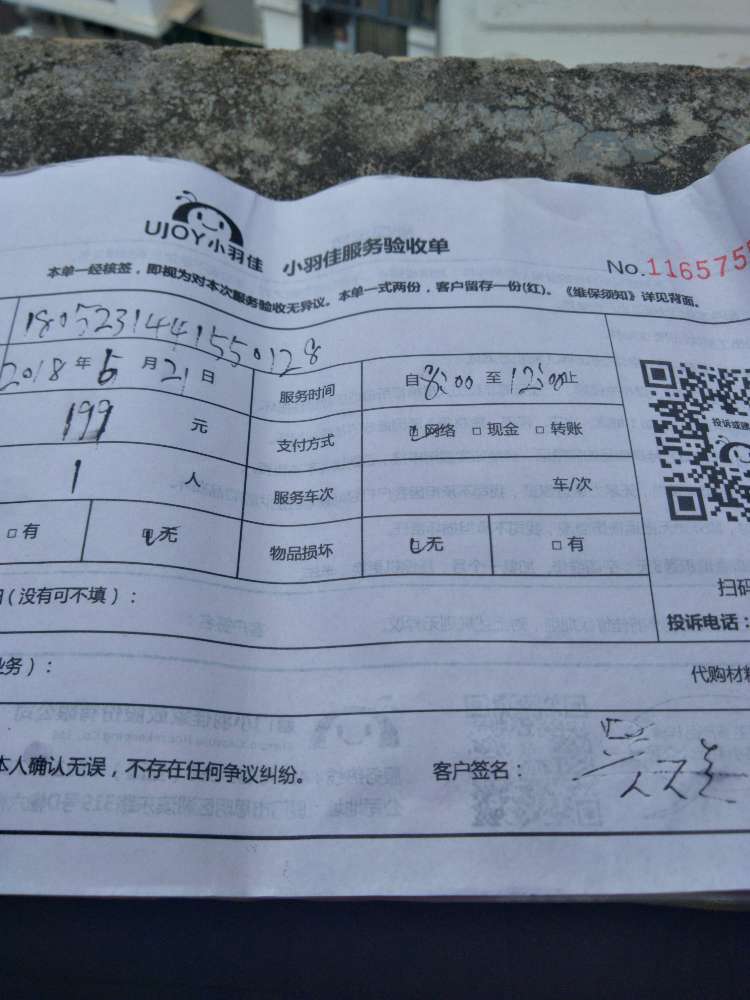 UJOY小羽佳 小羽佳服务验收单
No.1165755
本单一经核签，即视为对本次服务验收无异议。本单一式两份，客户留存一份(红)。《维保须知》详见背面。
1805231441550128
2018年6月21日 服务时间 自8:00至12:00止
199元 支付方式 网络 现金 转账
1人 服务车次 车/次
投诉或建
有 无 物品损坏 无 有
（没有可不填）：
扫码
投诉电话：
业务）：
代购材料
本人确认无误，不存在任何争议纠纷。 客户签名：